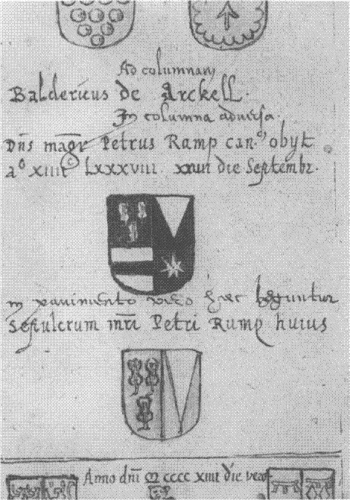 Ad columnam
Baldericus de Arckell.
In columna adversa
Dns magr Petrus Ramp can. obyt
a° xiiiic lxxxviii die Septembr.
in pavimento vero haec leguntur
Sepulcrum mri Petri Rump huius
Anno dni M cccc xiiii die